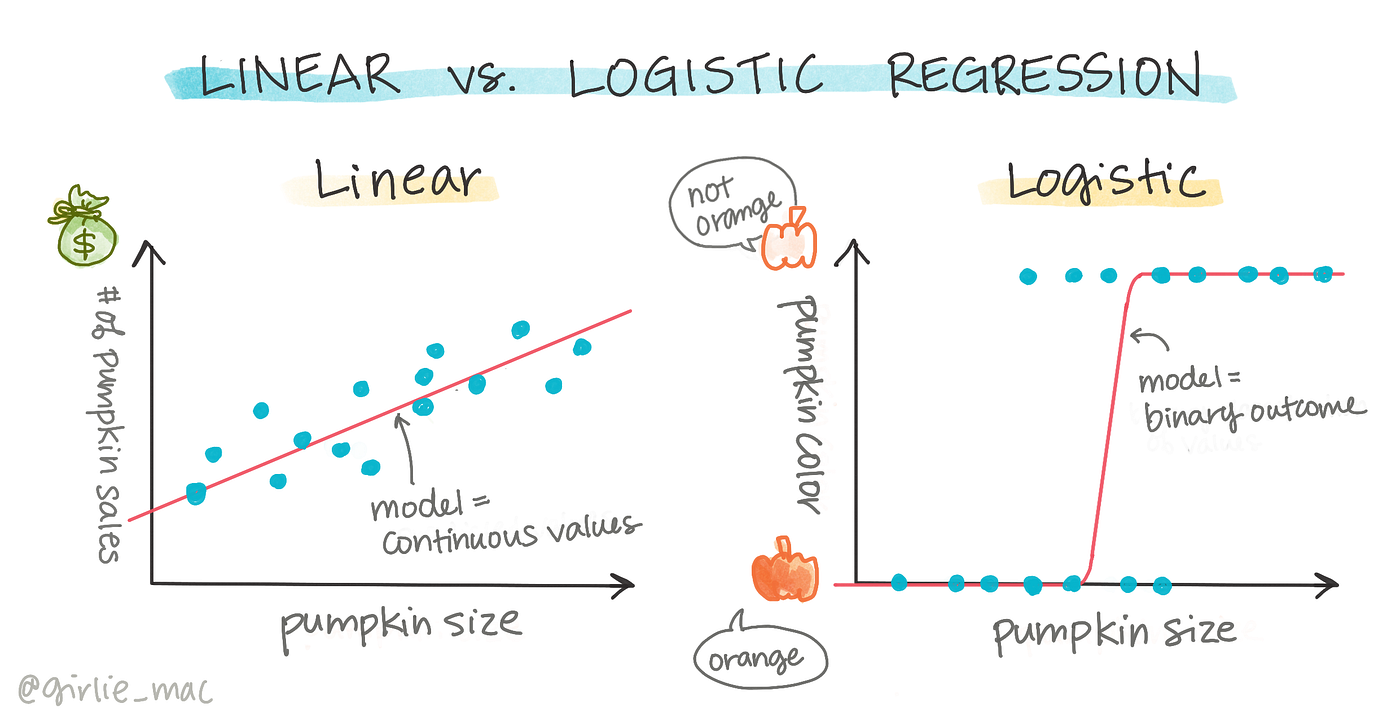 LINEAR vs. LOGISTIC REGRESSION
Linear
$
# of pumpkin sales
model =
continuous values
pumpkin size
@girlie_mac
Logistic
not
orange
pumpkin color
model =
binary outcome
orange
pumpkin size